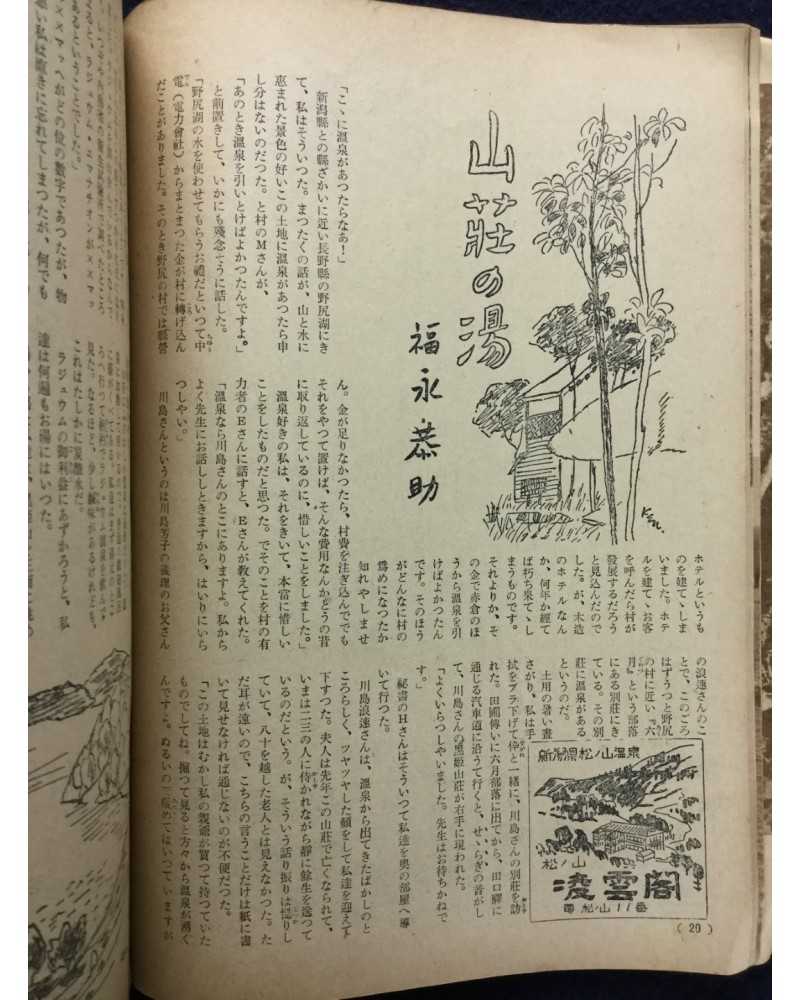 山莊の湯
福永恭助
「こゝに温泉があつたらなあ！」
新潟縣との縣ざかいに近い長野縣の野尻湖にき
て、私はそういつた。まつたくの話が、山と水に
惠まれた景色の好いこの土地に温泉があつたら申
し分はないのだつた。と村のMさんが、
「あのとき温泉を引いとけばよかつたんですよ。」
と前置きして、いかにも殘念そうに話した。
「野尻湖の水を使わせてもらうお禮だといつて中
電（電力會社）からまとまつた金が村に轉げ込ん
だことがありました。そのとき野尻の村では縣營
ホテルというも
のを建てゝしま
いました。ホテ
ルを建てゝお客
を呼んだら村が
發展するだろう
と見込んだので
した。が、木造
のホテルなん
か、何年か經て
ば朽ち果てゝし
まうものです。
それよりか、そ
の金で赤倉のほ
うから温泉を引
けばよかつたん
です。そのほう
がどんなに村の
爲めになつたか
知れやしませ
ん。金が足りなかつたら、村費を注ぎ込んででも
それをやつて置けば、そんな費用なんかどうの昔
に取り返しているのに、惜しいことをしました。」
温泉好きの私は、それをきいて、本當に惜しい
ことをしたものだと思つた。でそのことを村の有
力者のEさんに話すと、Eさんが教えてくれた。
「温泉なら川島さんのとこにありますよ。私から
よく先生にお話ししときますから、はいりにいら
つしやい。」
川島さんというのは川島芳子の義理のお父さん
の浪速さんのこ
とで、このごろ
はずうつと野尻
の村に近い『六
月』という部落
にある別莊にき
ている。その別
莊に温泉がある
というのだ。
土用の暑い晝
さがり、私は手
拭をブラ下げて伜と一緒に、川島さんの別莊を訪
れた。田圃傳いに六月部落に出てから、田口驛に
通じる汽車道に沿うて行くと、せゝらぎの音がし
て、川島さんの黑姫山莊が右手に現われた。
「よくいらつしやいました。先生はお待ちかねで
す。」
秘書のHさんはそういつて私達を奧の部屋へ導
いて行つた。
川島浪速さんは、温泉から出てきたばかしのと
ころらしく、ツヤツヤした顏をして私達を迎えて
下すつた。夫人は先年この山莊で亡くなられて、
いまは二三の人に侍かれながら靜に餘生を送つて
いるのだという。が、そういう話り振りは慥りし
ていて、八十を越した老人とは見えなかつた。た
だ耳が遠いので、こちらの言うことだけは紙に書
いて見せなければ通じないのが不便だつた。
「この土地はむかし私の親爺が買つて持つていた
ものでしてね。掘つて見ると方々から温泉が湧く
んですよ。ぬるいので暖めてはいつていますが
新潟縣松ノ山温泉
松ノ山
凌雲閣
電 松ノ山 11番
( 20 )
あるということでした。」
これはたしかに炭酸水だ。
ラジュウムの御利益にあずかろうと、私
達は何遍もお湯にはいつた。